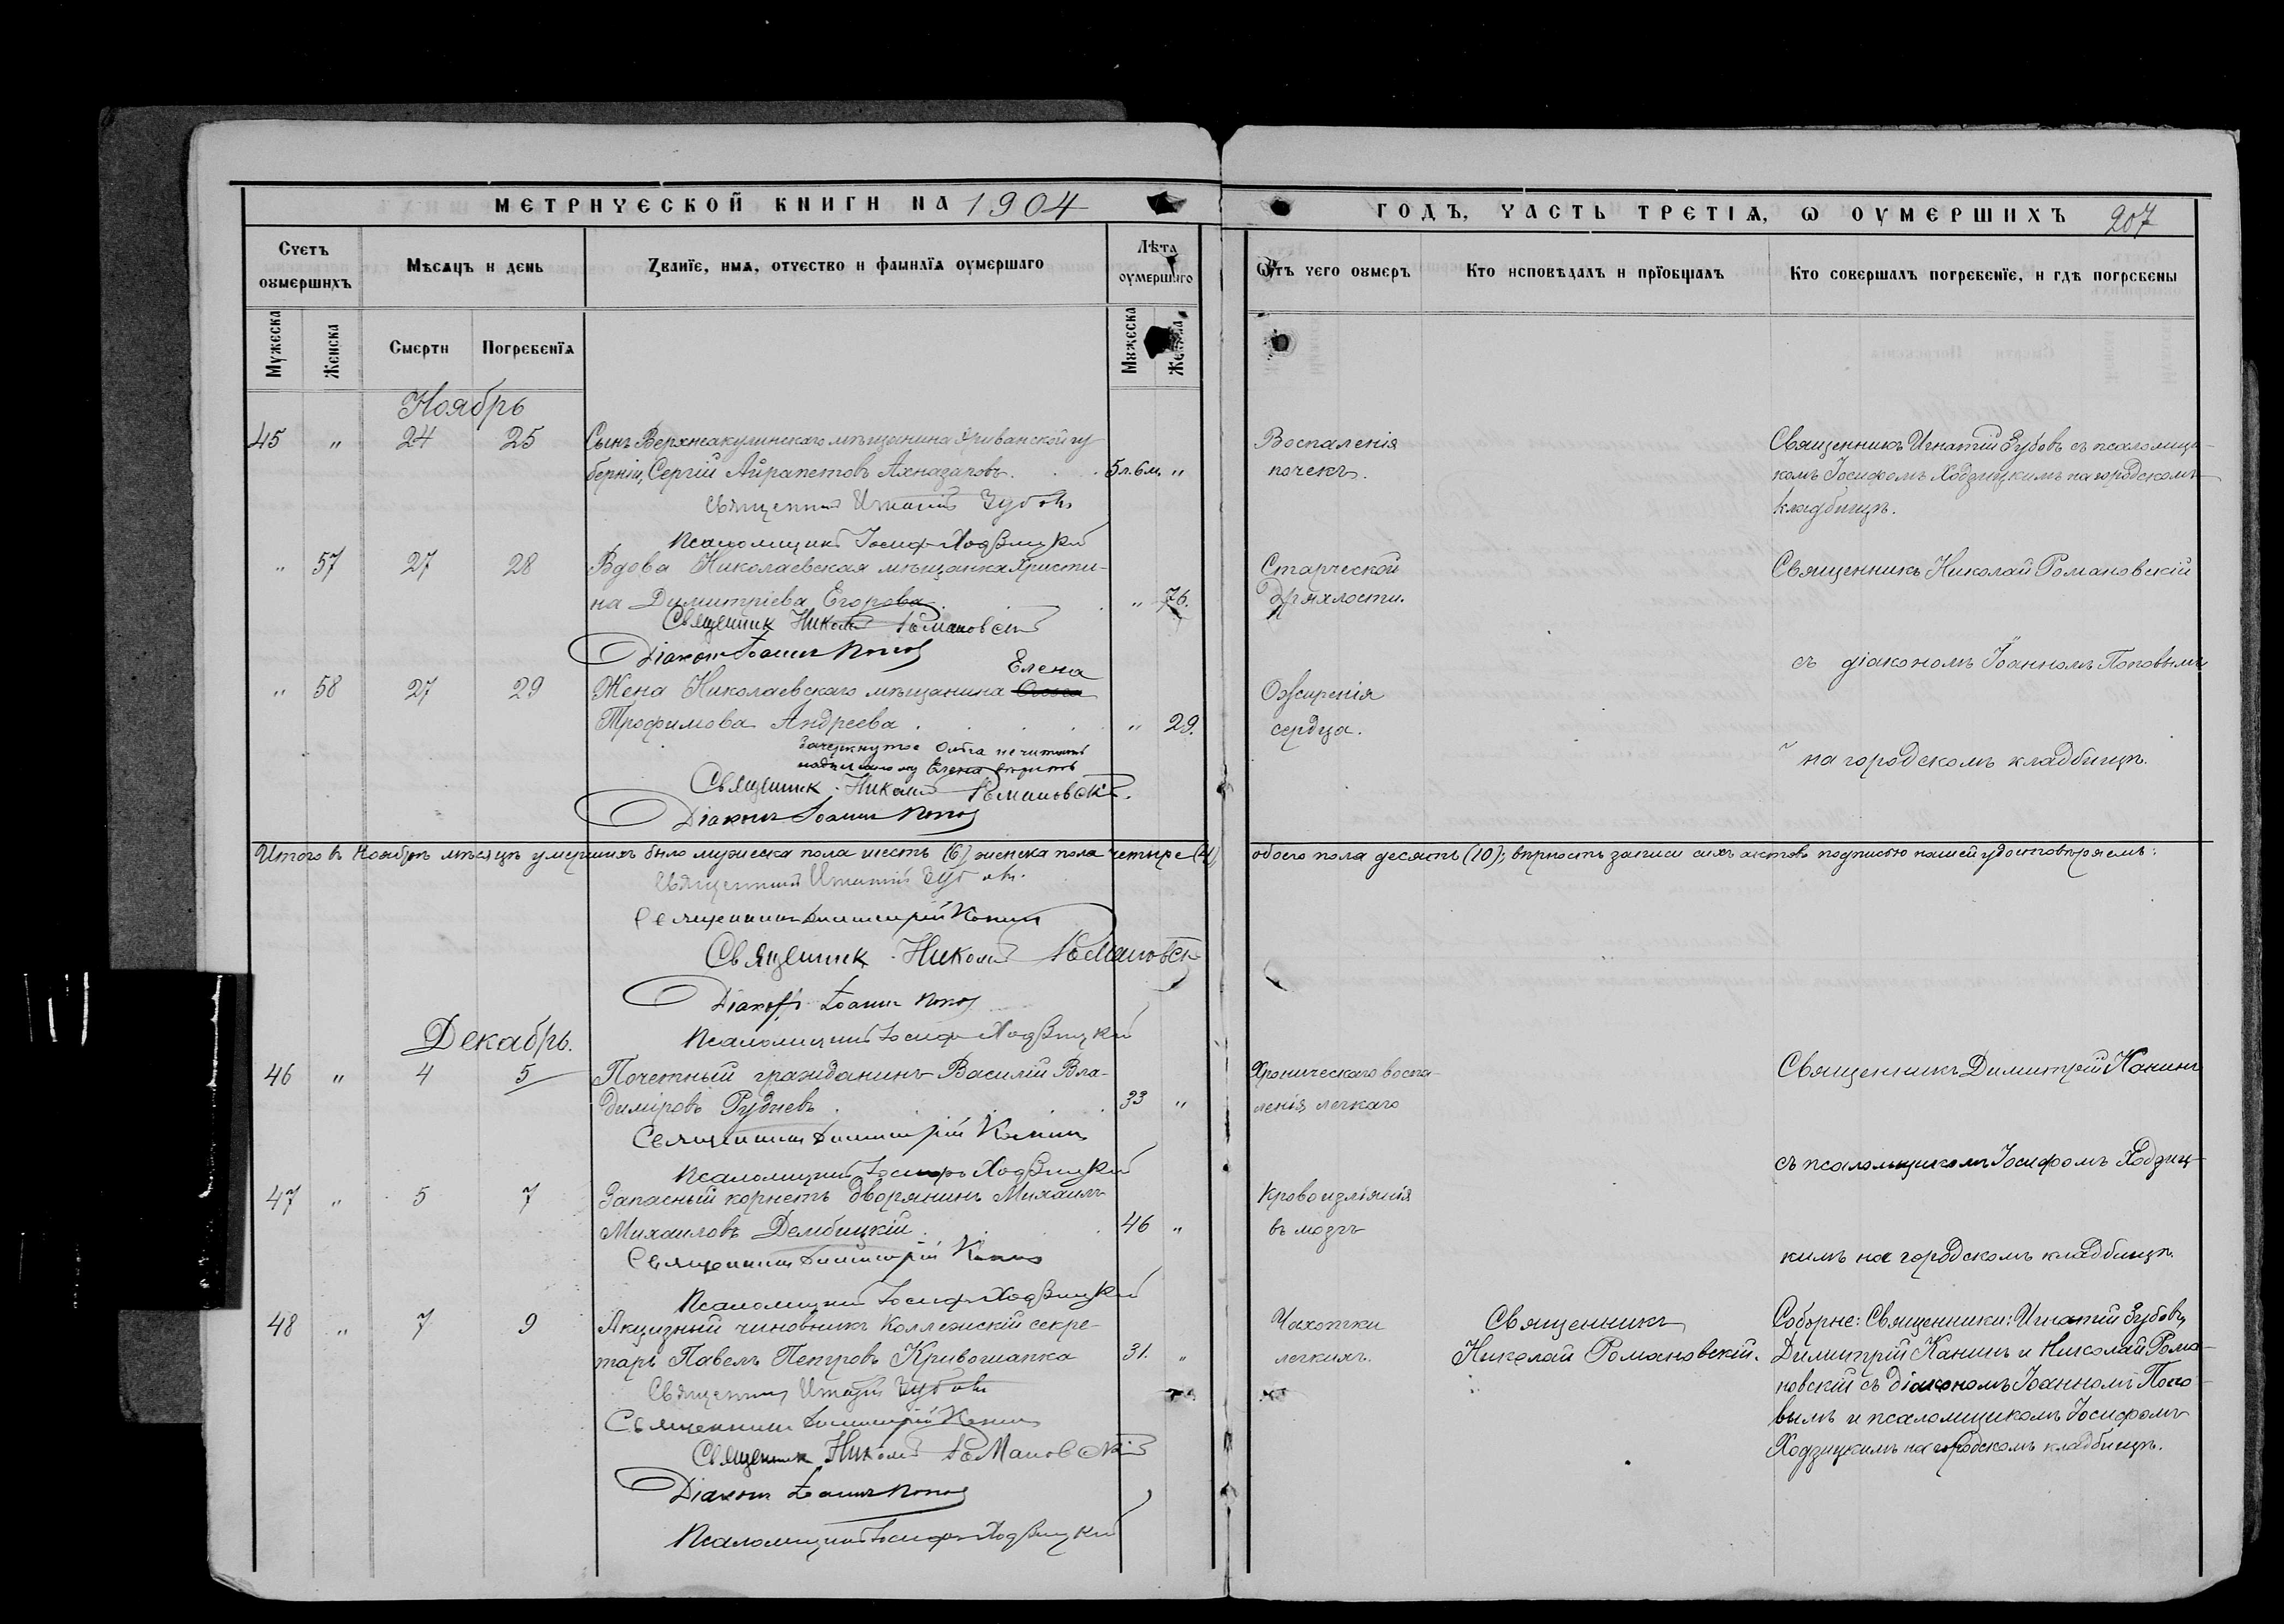 МЕТРИЧЕСКОЙ КНИГИ НА 1904
ГОДЪ, ЧАСТЬ ТРЕТІѦ, Ѡ ОУМЕРШИХЪ 207
Счетъ оумершихъ
Мѣсѧцъ и день
Званїе, имѧ, отчество и фамилїѧ оумершаго
Лѣта оумершаго
Мужеска
Женска
Смерти
Погребенїѧ
Мужеска
Женска
Ѿтъ чего оумеръ
Кто исповѣдалъ и прїобщалъ
Кто совершалъ погребенїе, и гдѣ погребены
Ноябрь
45 „ 24 25 Сынъ Верхнеакулинскаго мѣщанина Эриванской гу-
берніи, Сергій Айрапетовъ Ахназаровъ. 5 л. 6 м. „
Воспаленія
почекъ.
Священникъ Игнатій Зубовъ съ псаломщи-
комъ Іосифомъ Ходзицкимъ на городскомъ
кладбищѣ.
Священникъ Игнатій Зубовъ
Псаломщикъ Іосифъ Ходзицкій
„ 57 27 28 Вдова Николаевская мѣщанка Христи-
на Димитріева Егорова. „ 76.
Старческой
дряхлости.
Священникъ Николай Романовскій
Священник Николай Романовскій
Діаконъ Іоаннъ Поповъ
съ діакономъ Іоанномъ Поповымъ
Елена
„ 58 27 29 Жена Николаевскаго мѣщанина Ольга
Трофимова Андреева. „ 29.
Ожиренія
сердца.
Зачеркнутое Ольга не читать
надписанному Елена вѣрить
на городскомъ кладбищѣ.
Священник Николай Романовскій.
Діаконъ Іоаннъ Поповъ
Итого въ Ноябрѣ мѣсяцѣ умершихъ было мужеска пола шесть (6) женска пола четыре (4)
обоего пола десять (10); вѣрность записи сихъ актовъ подписью нашей удостовѣряемъ:
Священникъ Игнатій Зубовъ.
Священникъ Димитрій Канинъ
Священник Николай Романовскій
Діаконъ Іоаннъ Поповъ
Псаломщикъ Іосифъ Ходзицкій
Декабрь.
46 „ 4 5 Почетный гражданинъ Василій Вла-
диміровъ Рудневъ. 33 „
Хроническаго воспа-
ленія легкаго
Священникъ Димитрій Канинъ
Священникъ Димитрій Канинъ
Псаломщикъ Іосифъ Ходзицкій
съ псаломщикомъ Іосифомъ Ходзиц-
47 „ 5 7 Запасный корнетъ дворянинъ Михаилъ
Михаиловъ Дембицкій. 46 „
Кровоизліянія
въ мозгъ
Священникъ Димитрій Канинъ
Псаломщикъ Іосифъ Ходзицкій
кимъ на городскомъ кладбищѣ.
48 „ 7 9 Акцизный чиновникъ Коллежскій секре-
тарь Павелъ Петровъ Кривошапка 31. „
Чахотки
легкихъ.
Священникъ
Николай Романовскій.
Соборне: Священники: Игнатій Зубовъ,
Димитрій Канинъ и Николай Рома-
новскій съ діакономъ Іоанномъ Попо-
вымъ и псаломщикомъ Іосифомъ
Ходзицкимъ на городскомъ кладбищѣ.
Священникъ Игнатій Зубовъ
Священникъ Димитрій Канинъ
Священник Николай Романовскій
Діаконъ Іоаннъ Поповъ
Псаломщикъ Іосифъ Ходзицкій